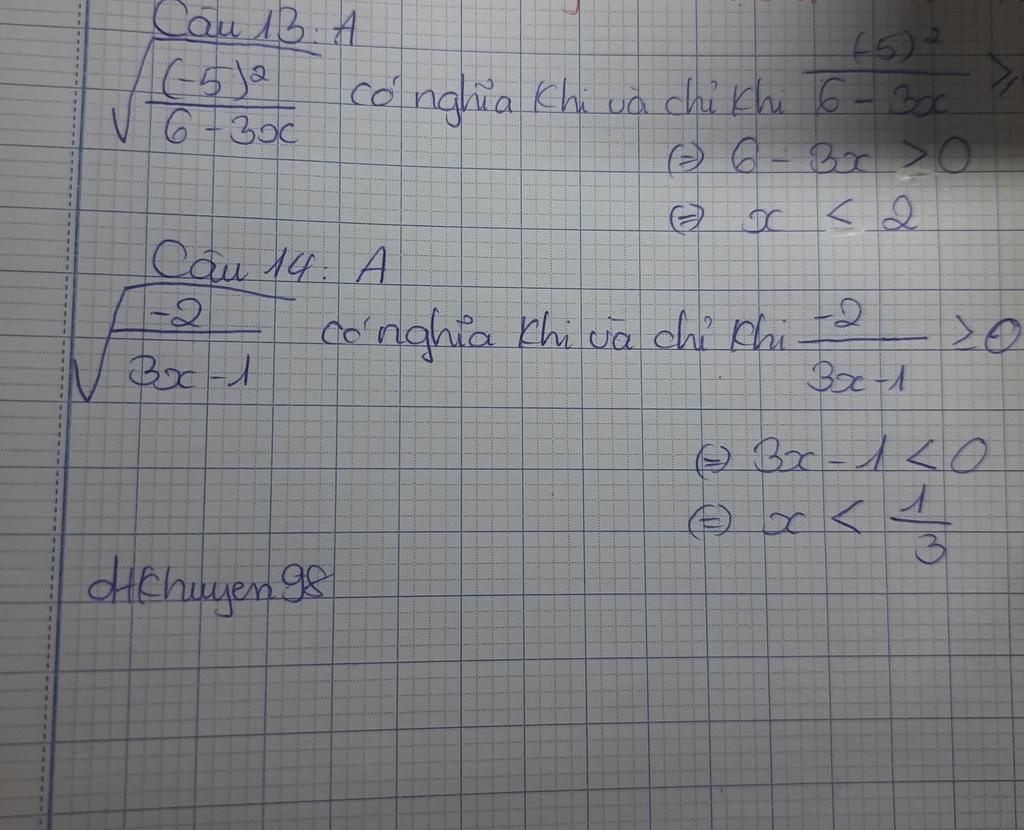 Câu 13: A
√((-5)²/(6-3x)) có nghĩa khi và chỉ khi (-5)²/(6-3x) ≥
⇔ 6 - 3x > 0
⇔ x < 2
Câu 14: A
√(-2/(3x-1)) có nghĩa khi và chỉ khi -2/(3x-1) ≥ 0
⇔ 3x - 1 < 0
⇔ x < 1/3
dtkhuyen98